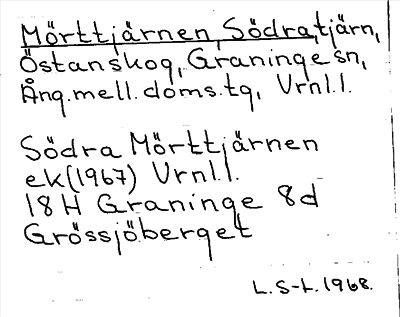 Mörttjärnen, Södra, tjärn,
Östanskog, Graninge sn,
Ång.mell.doms.tg, Vrnl.l.
Södra Mörttjärnen
ek(1967) Vrnl.l.
18H Graninge 8d
Grössjöberget
L.S-L. 1968.